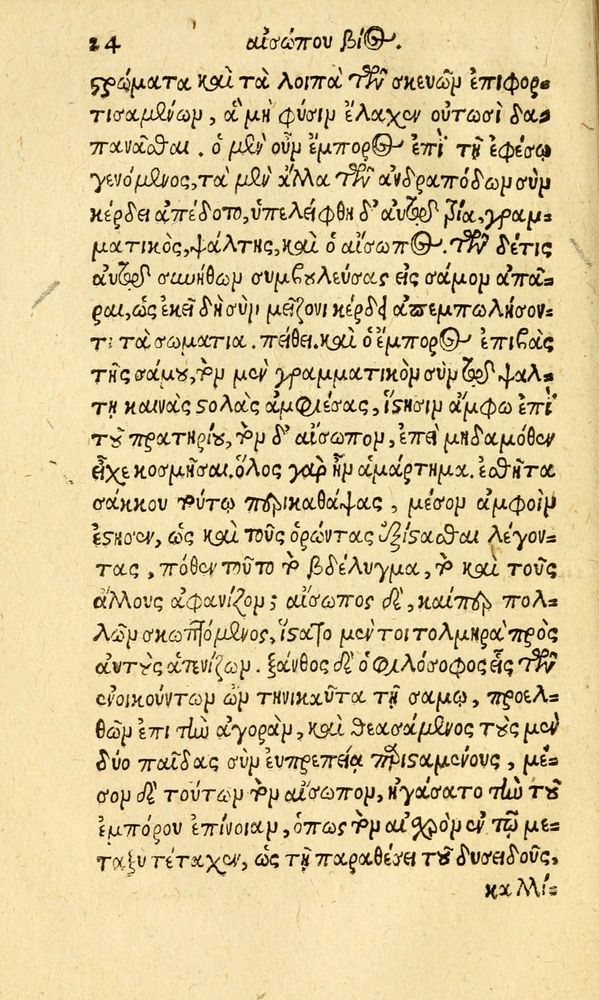 24 αἰσώπου βίος.
στρώματα καὶ τὰ λοιπὰ τῶν σκευῶν ἐπιφορ-
τισαμένων, ἃ μὴ φύσιν ἔλαχεν οὑτωσὶ δα-
πανᾶσθαι. ὁ μὲν οὖν ἔμπορος ἐπὶ τῇ ἐφέσῳ
γενόμενος, τὰ μὲν ἄλλα τῶν ἀνδραπόδων σὺν
κέρδει ἀπέδοτο, ὑπελείφθη δ' αὐτῷ τρία, γραμ-
ματικὸς, ψάλτης, καὶ ὁ αἴσωπος. τῶν δέ τις
αὐτῷ συνήθων συμβουλεύσας εἰς σάμον ἀπᾶ-
ραι, ὡς ἐκεῖ δὴ σὺν μείζονι κέρδει ἀπεμπωλήσον-
τι τὰ σωματια. πείθει. καὶ ὁ ἔμπορος ἐπιβὰς
τῆς σάμου, τὸν μὲν γραμματικὸν σὺν τῷ ψάλ-
τῃ καινὰς στολὰς ἀμφιέσας, ἵστησιν ἄμφω ἐπὶ
τοῦ πρατηρίου, τὸν δ' αἴσωπον, ἐπεὶ μηδαμόθεν
εἶχε κοσμῆσαι. ὅλος γὰρ ἦν ἁμάρτημα. ἐσθῆτα
σάκκου τούτῳ περικαθάψας, μέσον ἀμφοῖν
ἔστησεν, ὡς καὶ τοὺς ὁρῶντας ἐξίστασθαι λέγον-
τας, πόθεν τοῦτο τὸ βδέλυγμα, τὸ καὶ τοὺς
ἄλλους ἀφανίζον; αἴσωπος δὲ, καίπερ πολ-
λῶν σκωπτόμενος, ἵστατο μέντοι τολμηρὰ πρὸς
αὐτοὺς ἀτενίζων. ξάνθος δὲ ὁ φιλόσοφος εἷς τῶν
ἐνοικούντων ὢν τηνικαῦτα τῇ σάμῳ, προελ-
θὼν ἐπι τὴν ἀγορὰν, καὶ θεασάμενος τοὺς μὲν
δύο παῖδας σὺν εὐπρεπείᾳ παρισταμένους, μέ-
σον δὲ τούτων τὸν αἴσωπον, ἠγάσατο τὴν τοῦ
ἐμπόρου ἐπίνοιαν, ὅπως τὸν αἰσχρὸν ἐν τῷ με-
ταξὺ τέταχεν, ὡς τῇ παραθέσει τοῦ δυσειδοῦς,
καλλί-